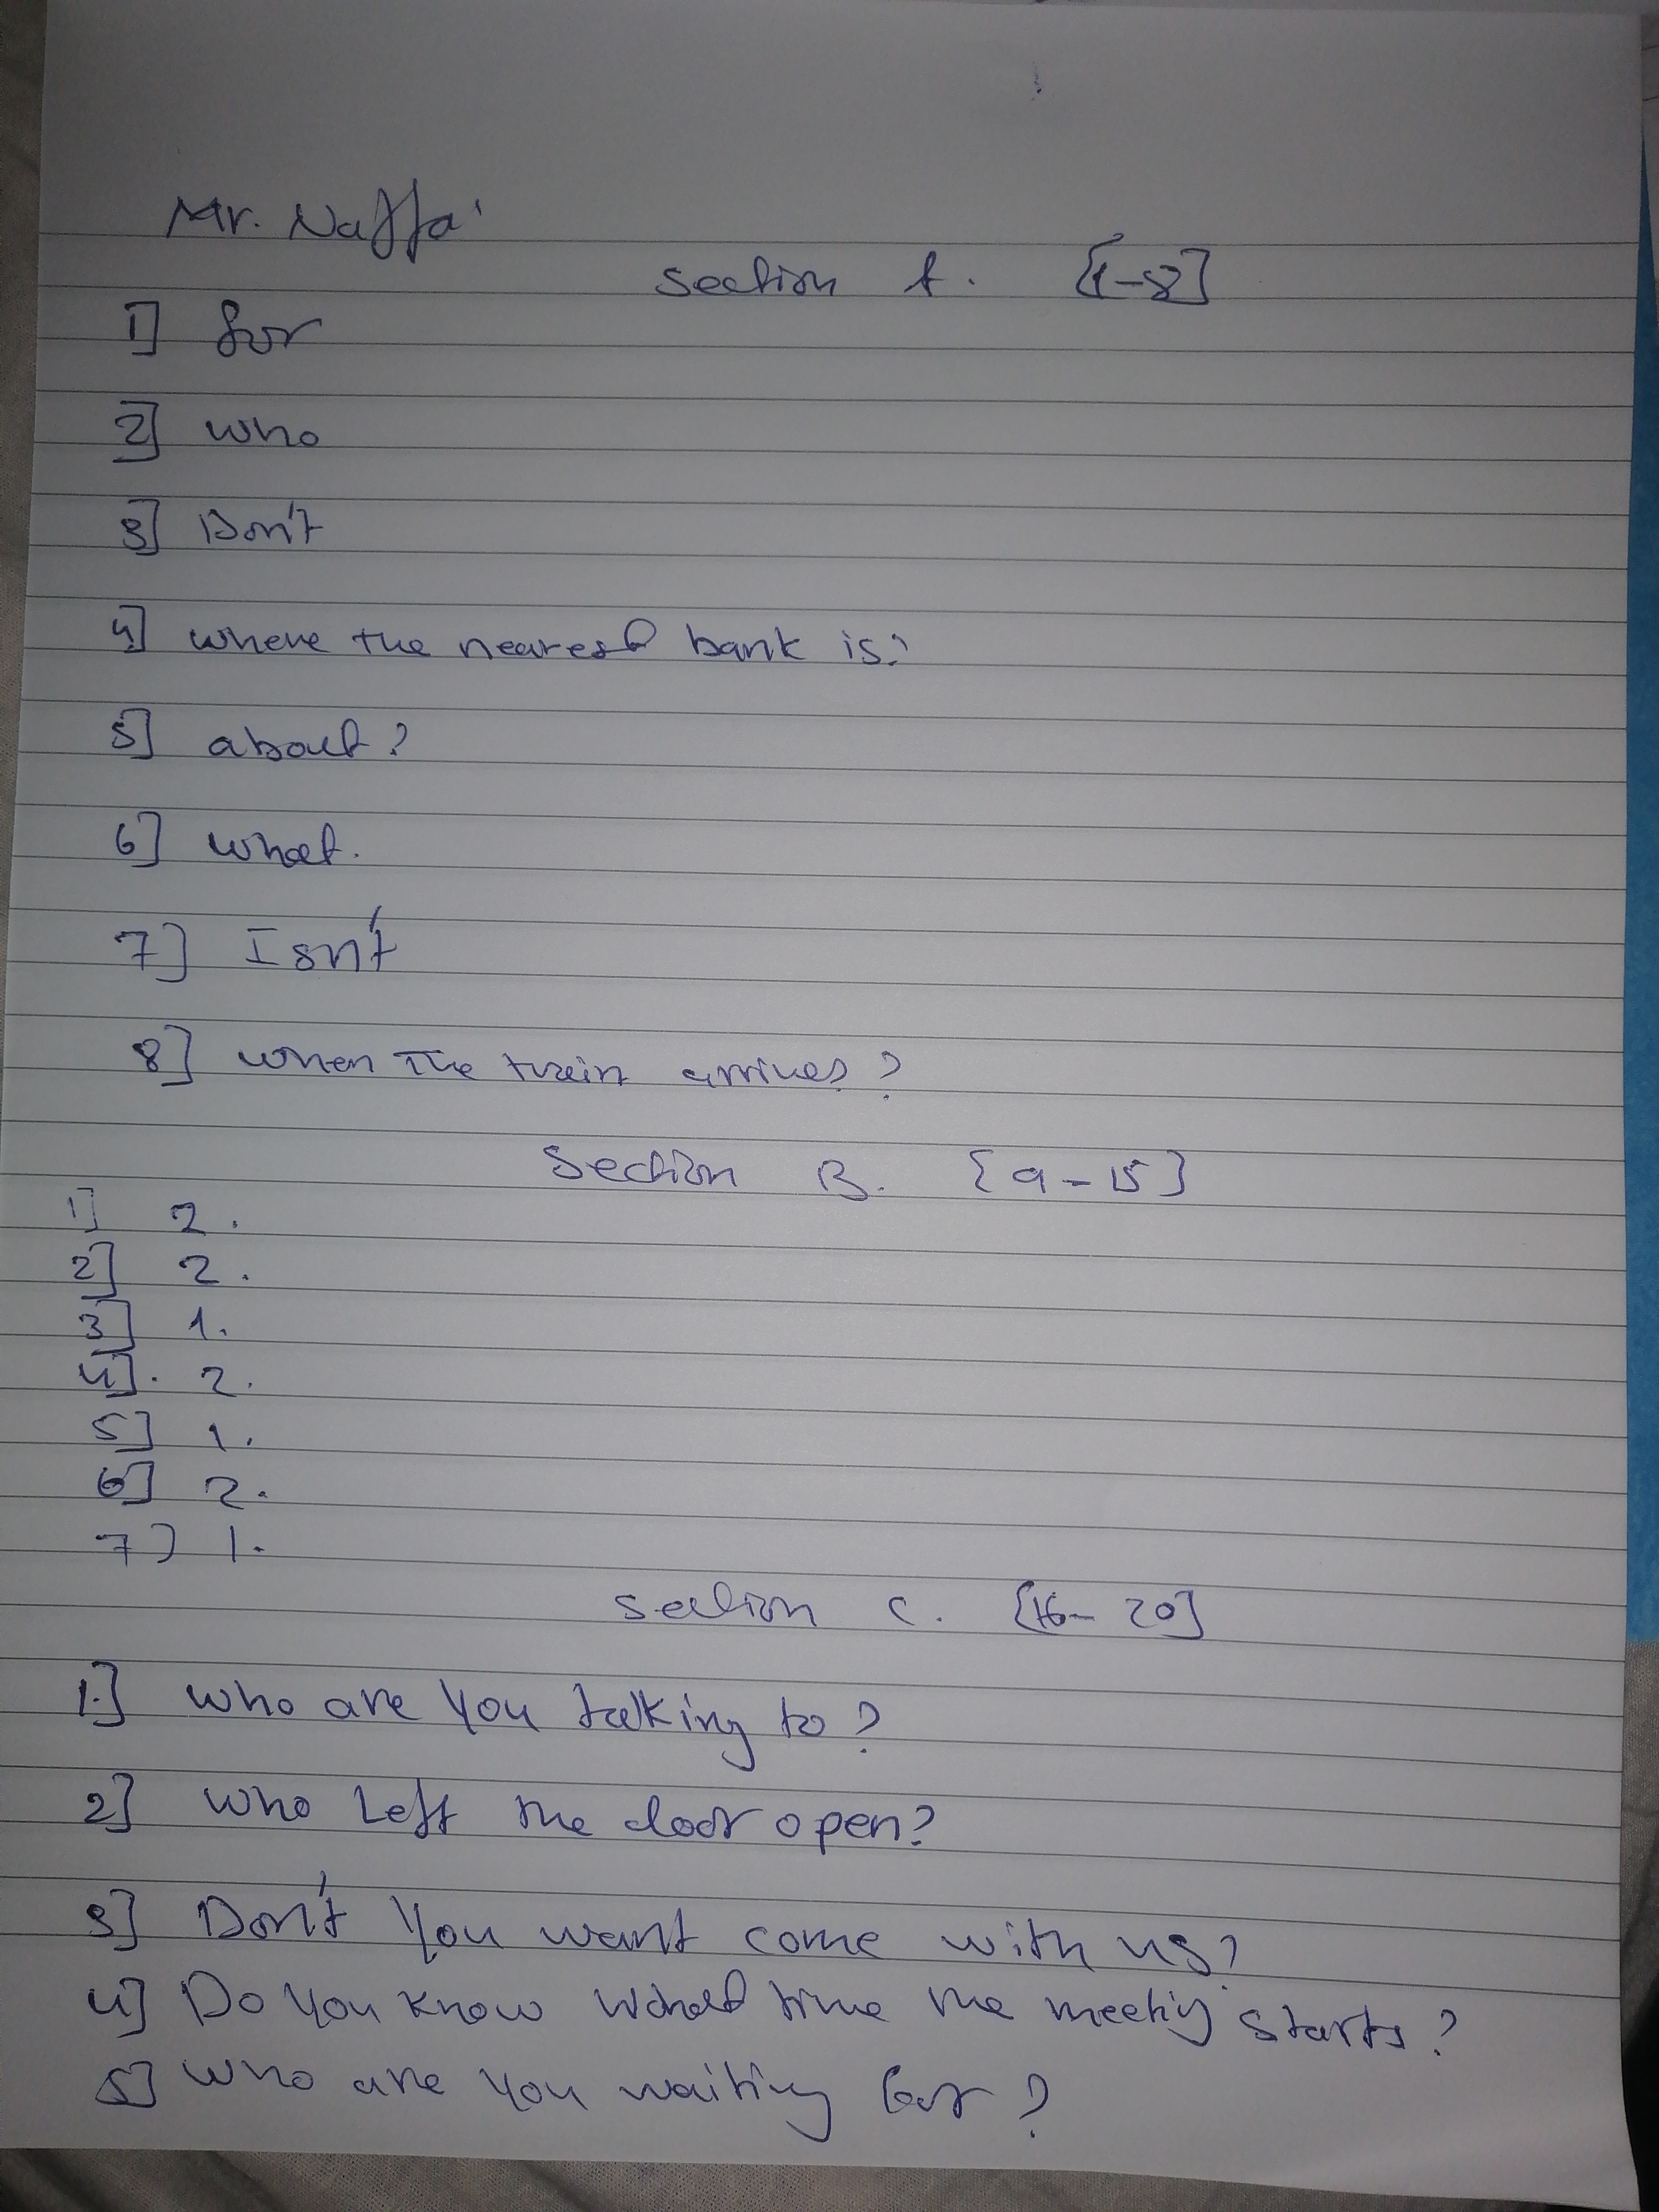 Mr. Naffa'
Section A. [1-8]
1] for
2] who
3] Don't
4] where the nearest bank is?
5] about?
6] what.
7] Isn't
8] when the train arrives?
Section B. [9-15]
1] 2.
2] 2.
3] 1.
4]. 2.
5] 1.
6] 2.
7) 1.
Section C. [16-20]
1.] who are you talking to?
2] who Left the door open?
3] Don't You want come with us?
4] Do You know what time the meeting starts?
5] who are you waiting for?